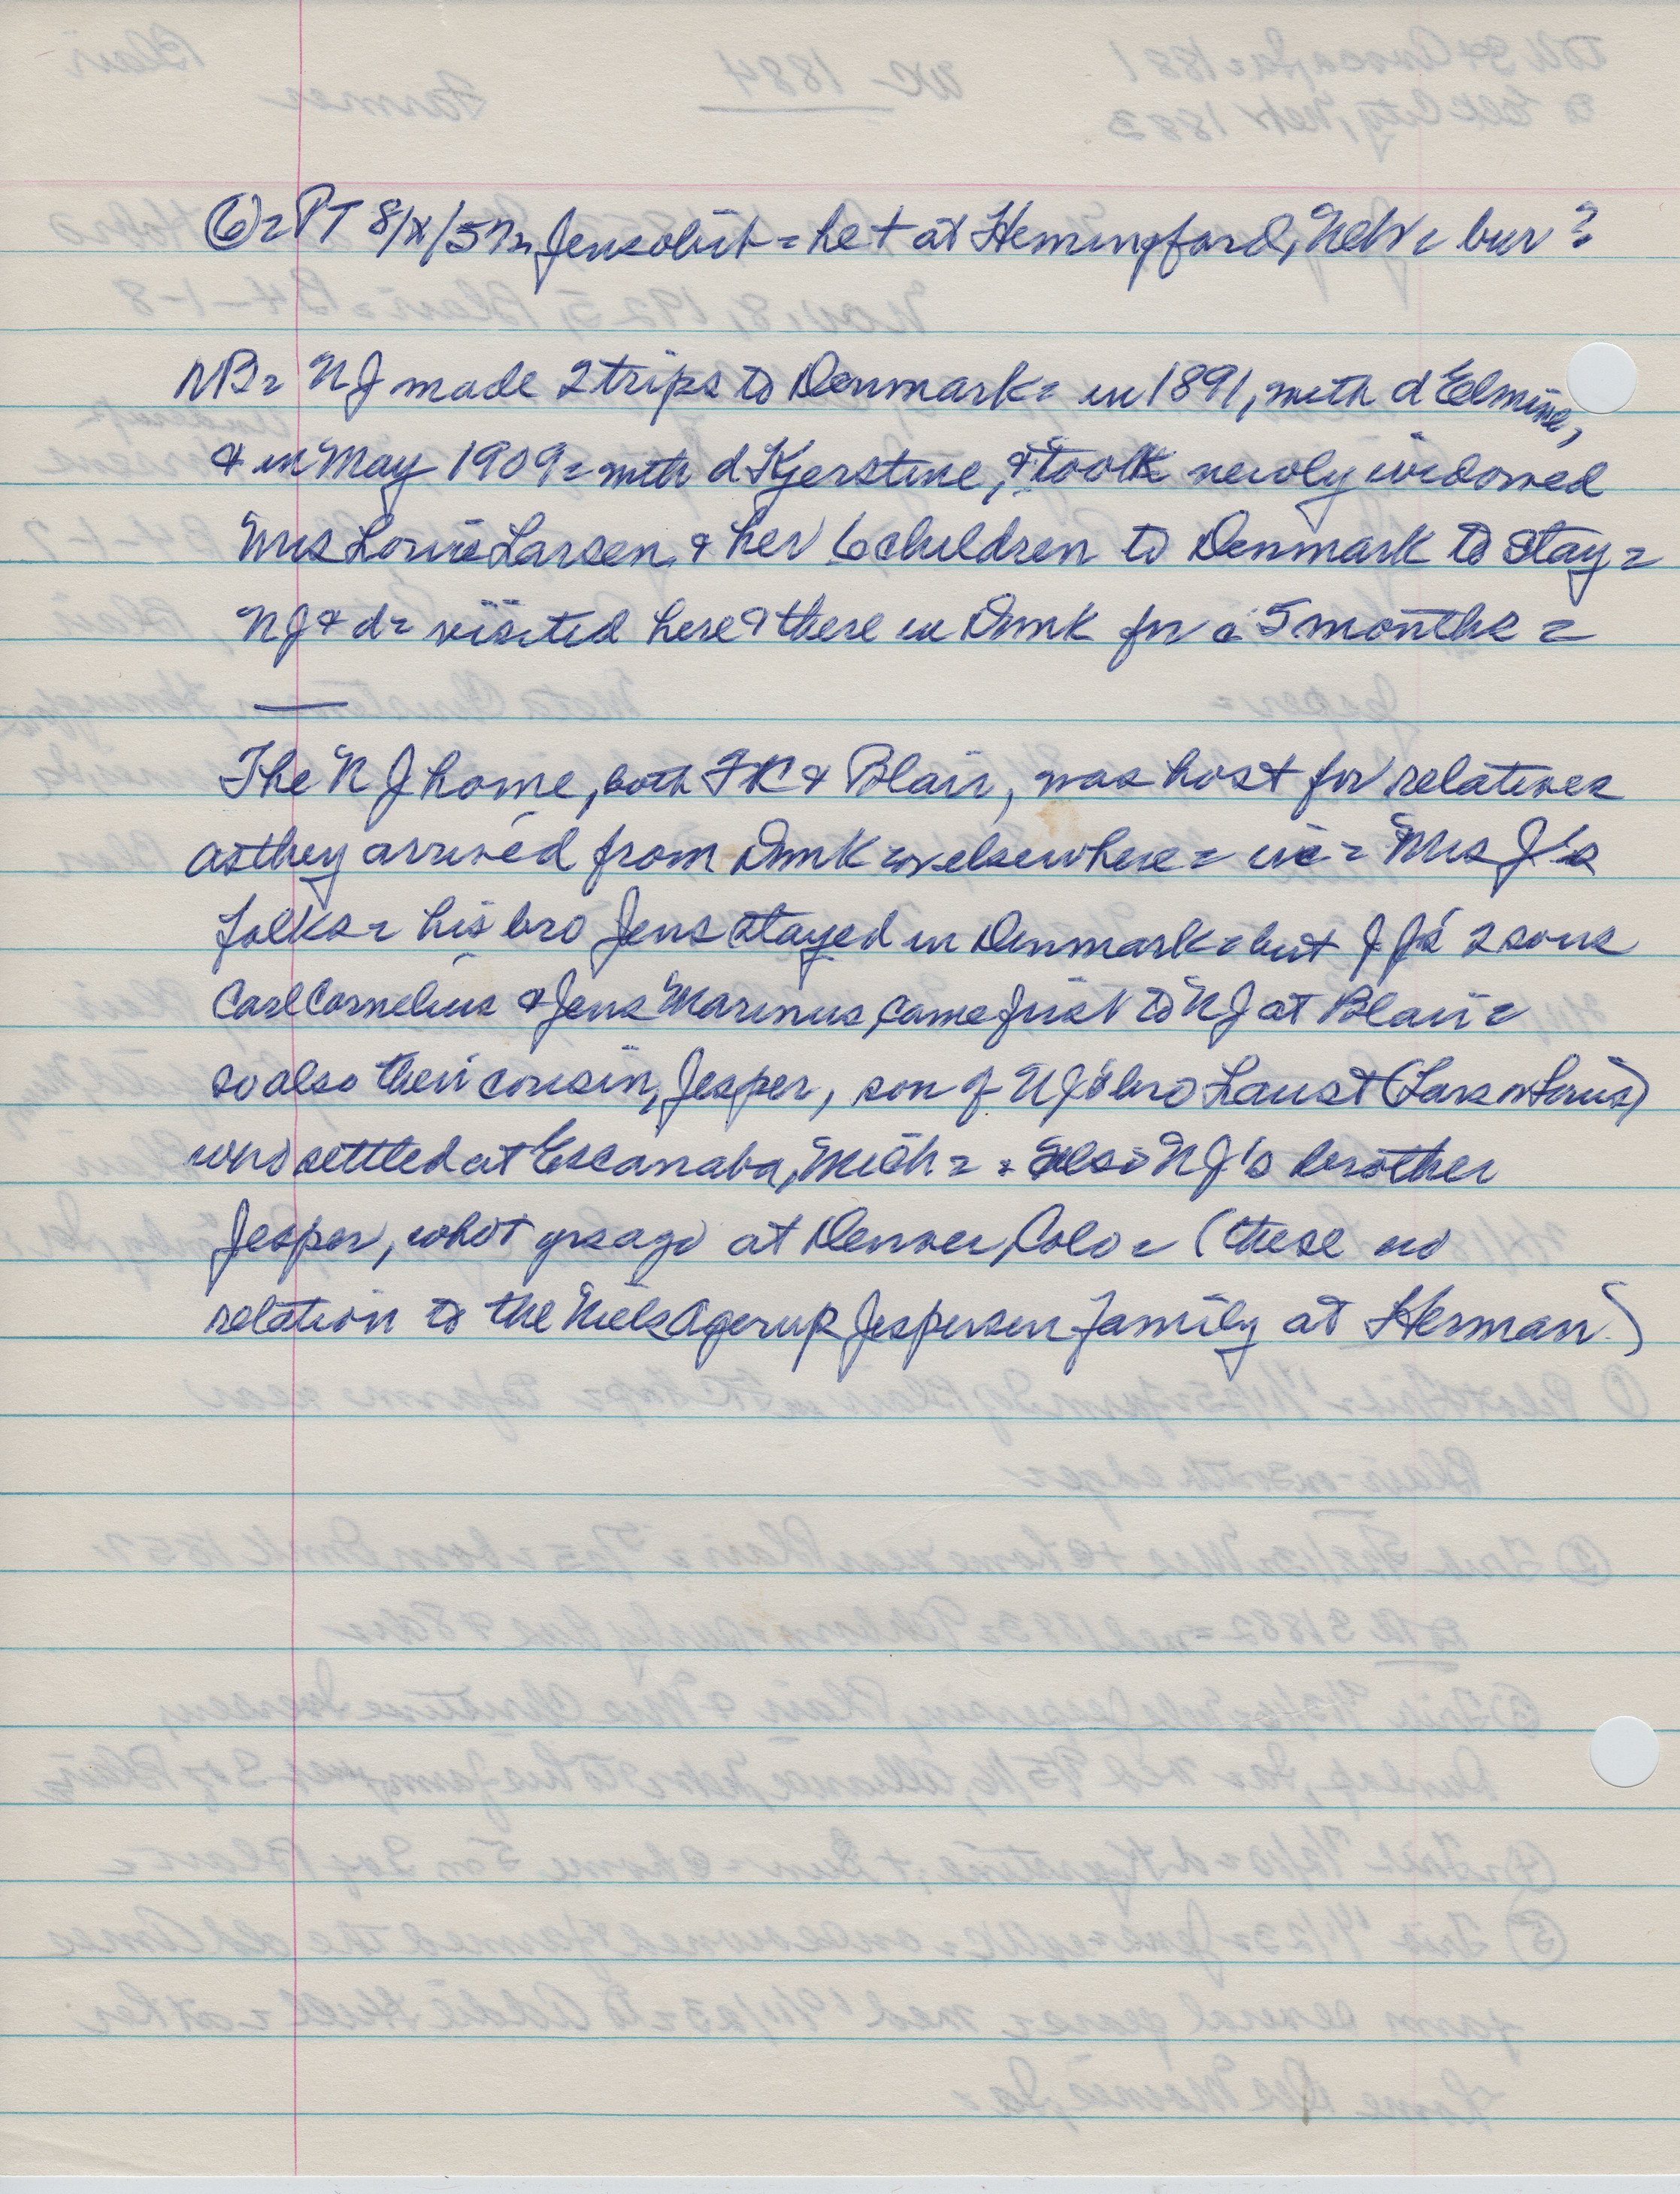 ⑥= PT 8/X/57= Jens obit = he + at Hemingford, Nebr = bur?
NB= NJ made 2 trips to Denmark = in 1891, with d Elmine,
& in May 1909 = with d Kjerstine, & took newly widowed
Mrs Louis Larsen & her 6 children to Denmark to stay =
NJ & d = visited here & there in Dmk for c 5 months =
The NJ home, both FK & Blair, was host for relatives
as they arrived from Dmk or elsewhere = ie = Mrs J's
folks = his bro Jens stayed in Denmark = but JJ's 2 sons
Carl Cornelius & Jens Marinus, came first to NJ at Blair =
so also their cousin, Jesper, son of NJ's bro Laust (Lars or Louis)
who settled at Escanaba, Mich = = also NJ's brother
Jesper, who + yrs ago at Denver, Colo = (these no
relation to the Niels Agerup Jespersen family at Herman)